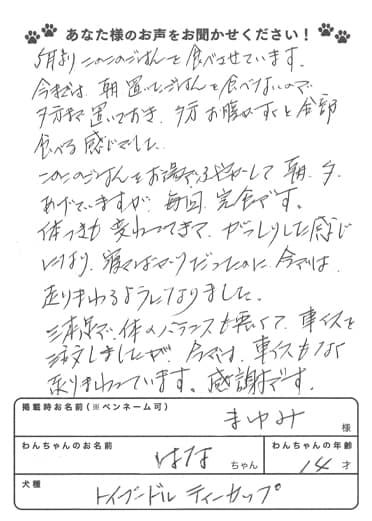 あなた様のお声をお聞かせください！
5月より このこのごはんを食べさせています。
今までは、朝 置いたごはんを食べないので
夕方まで置いておき、夕方 お腹がすくと全部
食べる感じでした。
このこのごはんをお湯でふやかして 朝、夕、
あげていますが、毎回、完食です。
体つきも変わってきて、がっしりした感じ
になり、寝てばかりだったのに、今では、
走りまわるようになりました。
三本足で、体のバランスも悪くて、車イスを
注文しましたが、今では、車イスもなく
走りまわっています。感謝です。
掲載時お名前（※ペンネーム可）
まゆみ 様
わんちゃんのお名前
はな ちゃん
わんちゃんの年齢
14 才
犬種
トイプードル ティーカップ